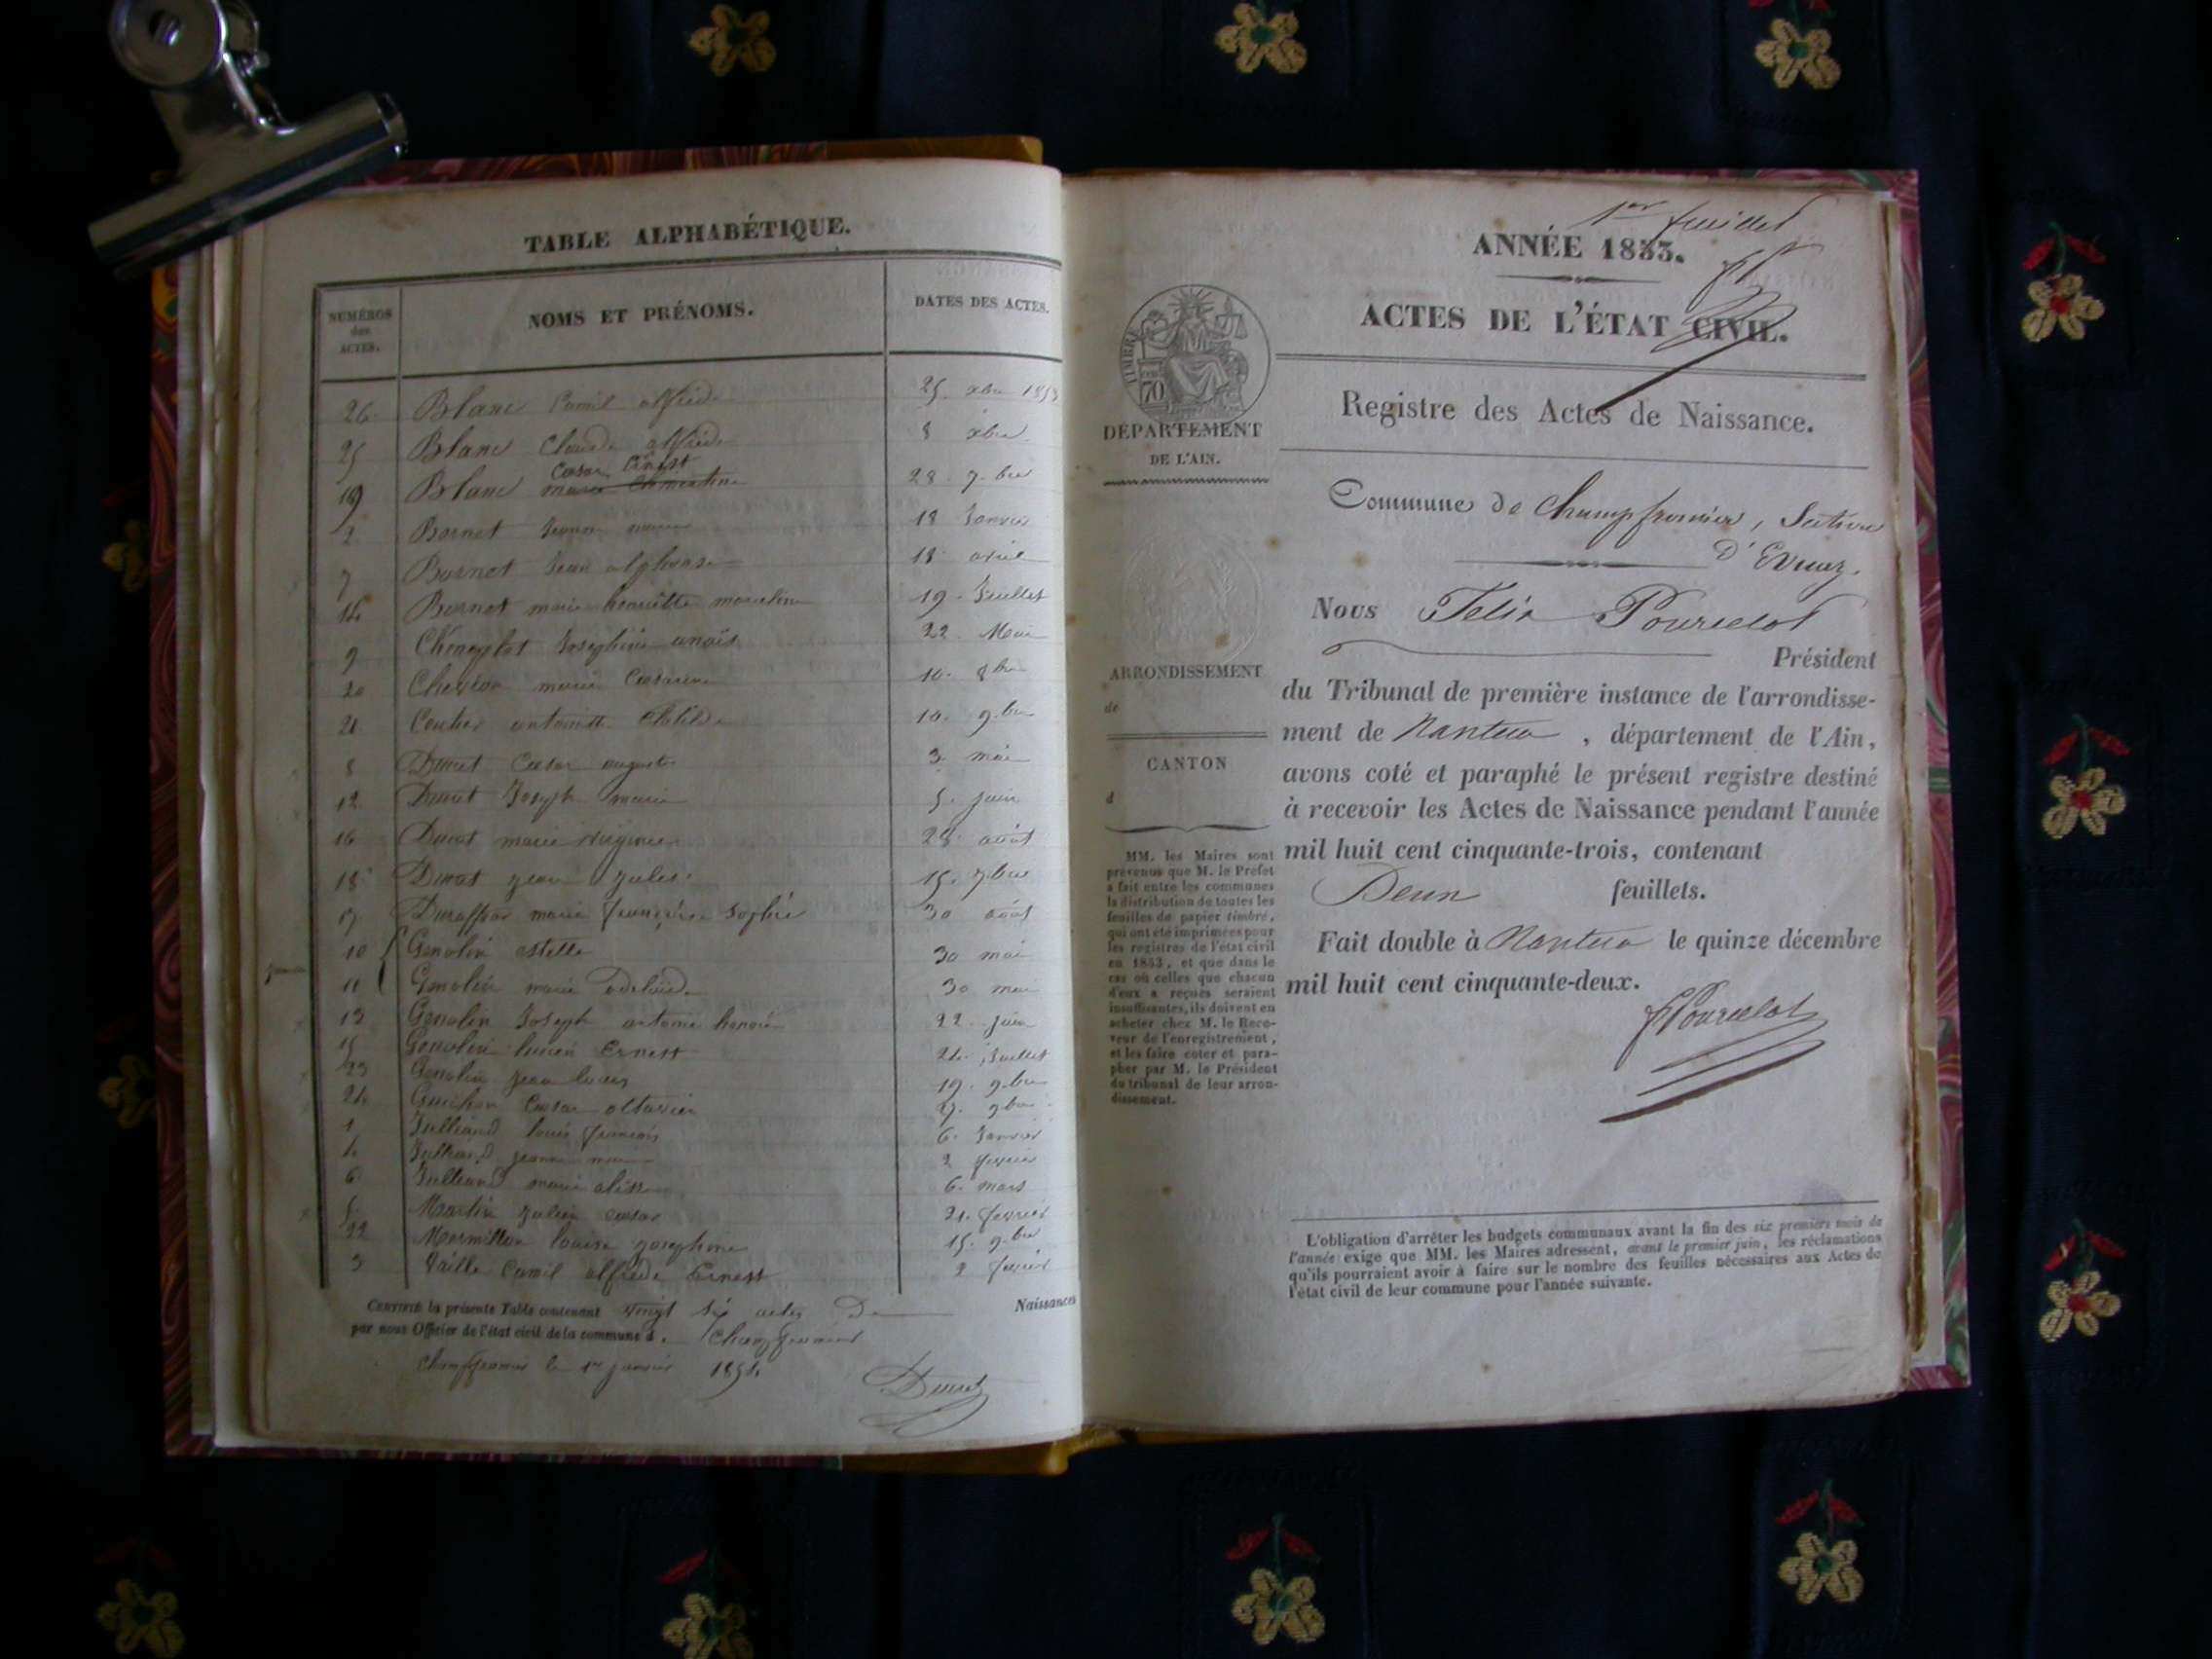 TABLE ALPHABÉTIQUE.
NUMÉROS
des
ACTES.
NOMS ET PRÉNOMS.
DATES DES ACTES.
26. Blanc Camil alfred 25. xbre 1853
25 Blanc Claude alfred 8 xbre
19 Blanc Cesar Ernest 28. 7.bre
2 Bornet Jeanne marie 18 Janvier
7 Bornet Jean alphonse 18 avril
14 Bornet marie henriette marceline 19. Juillet
9 Josephine anaïs 22. Mai
20 marie 10. 8bre
21 Coutier antoinette Clotilde 10. 9.bre
8 Ducret Cesar auguste 3. mai
12 Ducret Joseph marie 5. juin
16 Ducret marie 28. août
18 Ducret jean jules. 15. 7bre
17 Duraffour marie françoise Sophie 30 août
10 Genolin estelle 30 mai
11 Genolin marie adelaïde 30 mai
13 Genolin Joseph antoine honoré 22. juin
15 Genolin lucien Ernest 24. Juillet
23 Genolin jean louis 19. 9.bre
24 Guichon Cesar octavien 9bre
1 Julliand louis françois 6. Janvier
4 Julliand jeanne marie 2 fevrier
6 Julliand marie 6. mars
5. Martin julien cesar 21. fevrier
22 Marmillon louise josephine 15. 9.bre
3 Vaille Camil alfred Ernest 2 fevrier
CERTIFIÉ la présente Table contenant Vingt Six actes De Naissances
par nous Officier de l'état civil de la commune d. Champfromier
Champfromier le 1er janvier 1854
Ducret
1er feuillet
ANNÉE 1853.
ACTES DE L'ÉTAT CIVIL.
Registre des Actes de Naissance.
TIMBRE
70
DÉPARTEMENT
DE L'AIN.
Commune de Champfromier, Section
D'Evuaz.
Nous Felix Pourcelot
Président
du Tribunal de première instance de l'arrondisse-
ment de Nantua , département de l'Ain,
avons coté et paraphé le présent registre destiné
à recevoir les Actes de Naissance pendant l'année
mil huit cent cinquante-trois, contenant
Deux feuillets.
Fait double à Nantua le quinze décembre
mil huit cent cinquante-deux.
FPourcelot
ARRONDISSEMENT
de
CANTON
d
MM. les Maires sont
prévenus que M. le Préfet
a fait entre les communes
la distribution de toutes les
feuilles de papier timbré,
qui ont été imprimées pour
les registres de l'état civil
en 1853, et que dans le
cas où celles que chacun
d'eux a reçues seraient
insuffisantes, ils doivent en
acheter chez M. le Rece-
veur de l'enregistrement,
et les faire coter et para-
pher par M. le Président
du tribunal de leur arron-
dissement.
L'obligation d'arrêter les budgets communaux avant la fin des six premiers mois de
l'année exige que MM. les Maires adressent, avant le premier juin, les réclamations
qu'ils pourraient avoir à faire sur le nombre des feuilles nécessaires aux Actes de
l'état civil de leur commune pour l'année suivante.